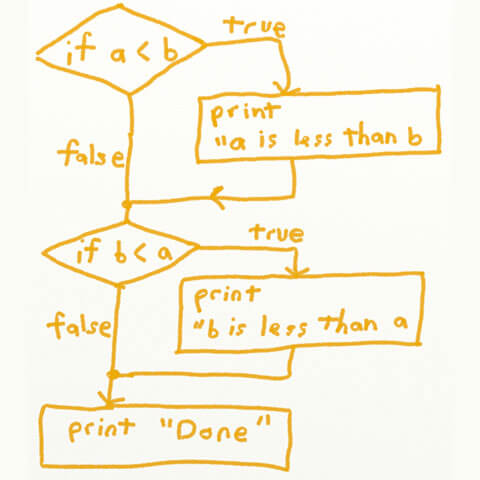 if a < b
true
print
"a is less than b
false
if b < a
true
print
"b is less than a
false
print "Done"